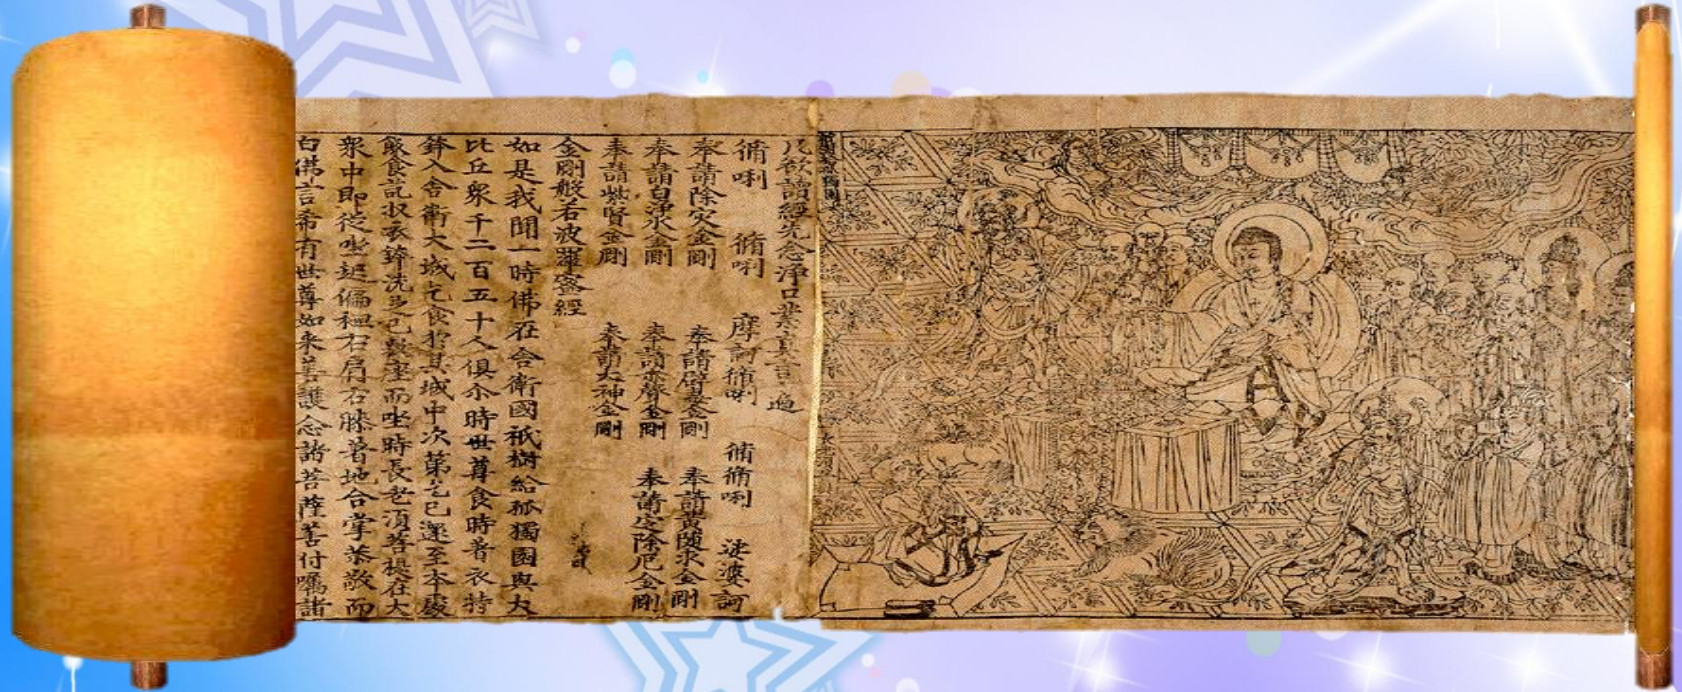 凡欲讀經先念淨口業真言一遍
脩唎 脩唎 摩訶脩唎 脩脩唎 娑婆訶
奉請除灾金剛 奉請辟毒金剛 奉請黃隨求金剛
奉請白淨水金剛 奉請赤聲金剛 奉請定除厄金剛
奉請紫賢金剛 奉請大神金剛
金剛般若波羅蜜經
如是我聞一時佛在舍衛國祇樹給孤獨園與大
比丘衆千二百五十人俱尒時世尊食時著衣持
鉢入舍衛大城乞食於其城中次第乞已還至本處
飯食訖収衣鉢洗足已敷座而坐時長老湏菩提在大
衆中即從坐起偏袒右肩右膝著地合掌恭敬而
白佛言希有世尊如來善護念諸菩薩善付囑諸